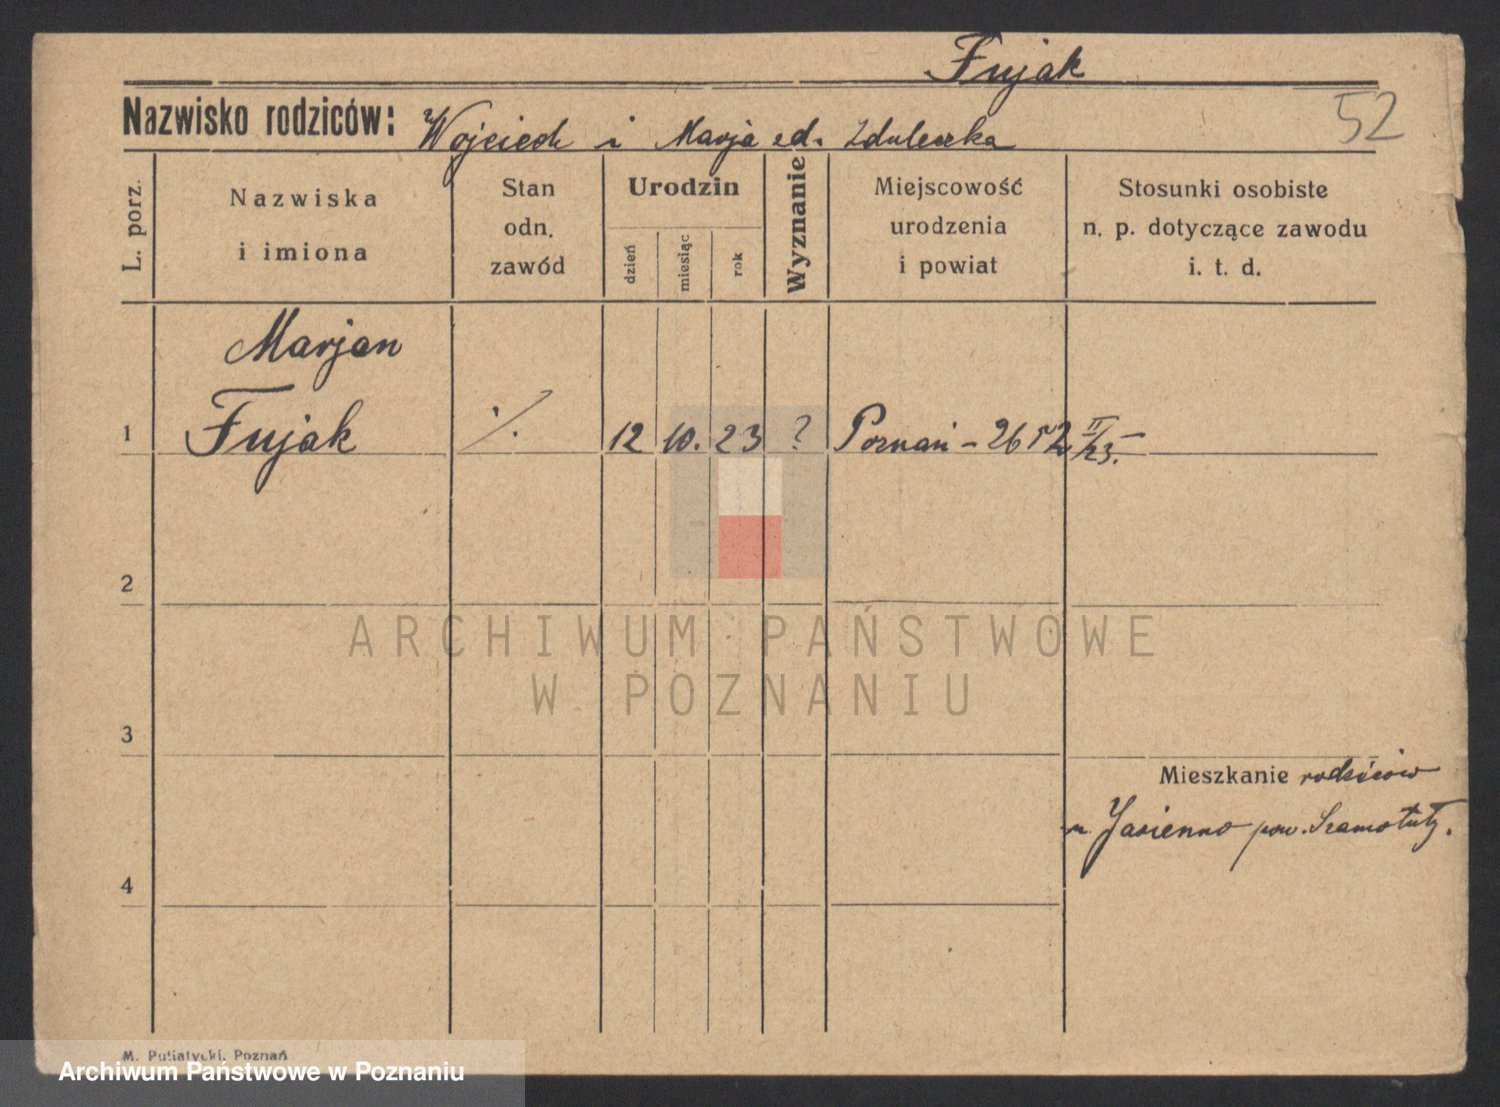 Fujak
52
Nazwisko rodziców: Wojciech i Marja zd. Zduleczka
L. porz.
Nazwiska
i imiona
Stan
odn.
zawód
Urodzin
dzień
miesiąc
rok
Wyznanie
Miejscowość
urodzenia
i powiat
Stosunki osobiste
n. p. dotyczące zawodu
i. t. d.
Marjan
1 Fujak ·/. 12 10. 23 ? Poznań – 2652 II/23.
2
3
4
Mieszkanie rodziców
m. Jasienno pow. Szamotuły.
ARCHIWUM PAŃSTWOWE
W POZNANIU
M. Putiatycki, Poznań
Archiwum Państwowe w Poznaniu